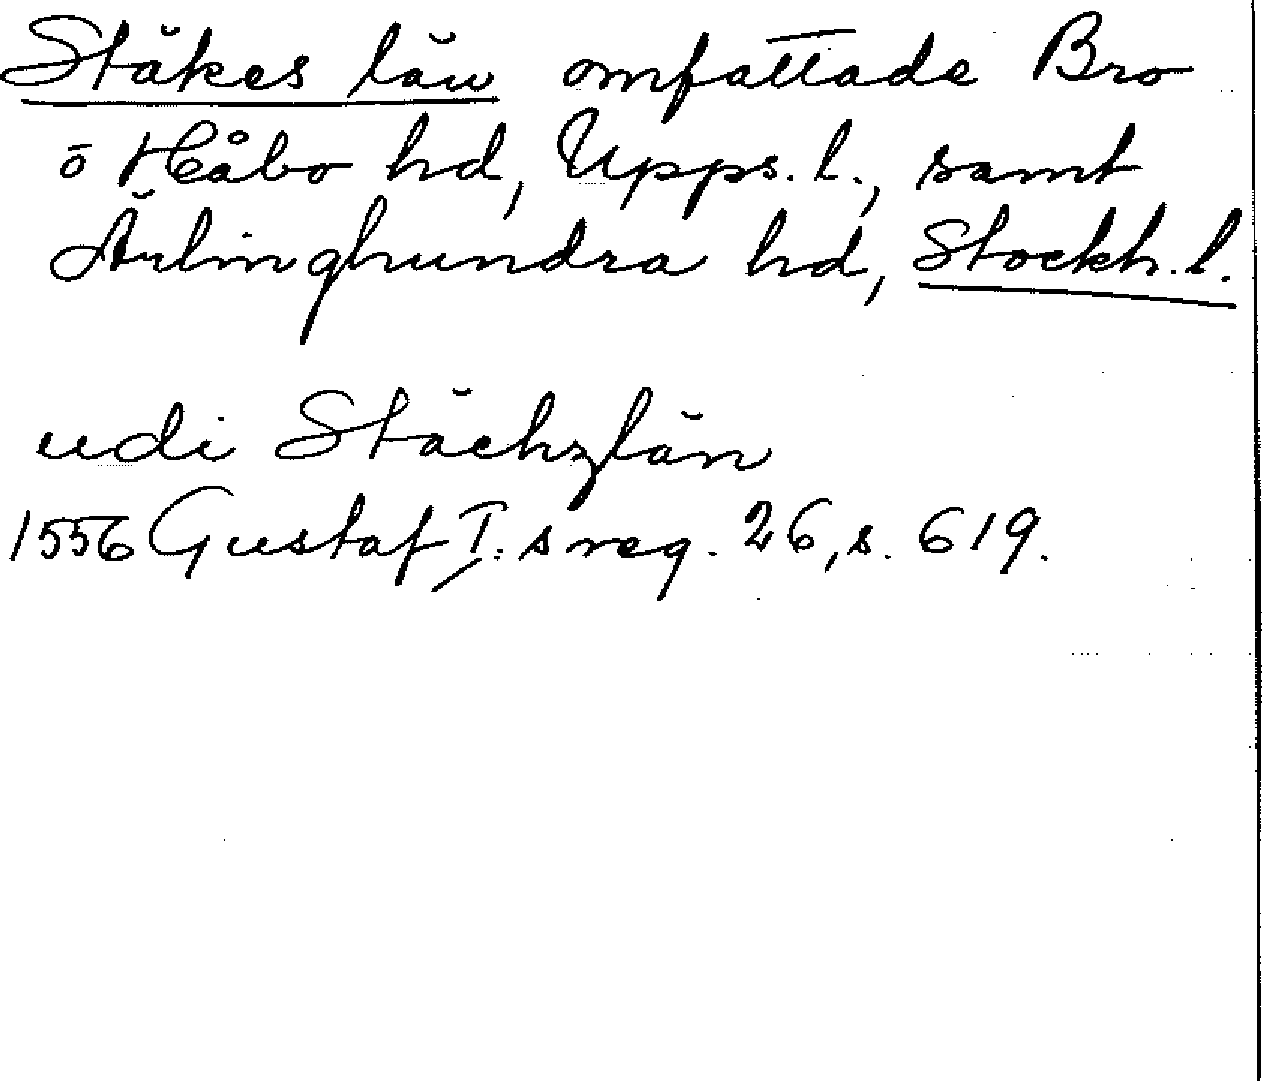 Stäkes län omfattade Bro
o Håbo hd, Upps. l., samt
Ärlinghundra hd, Stockh. l.
udi Stächzlän
1556 Gustaf I:s reg. 26, s. 619.